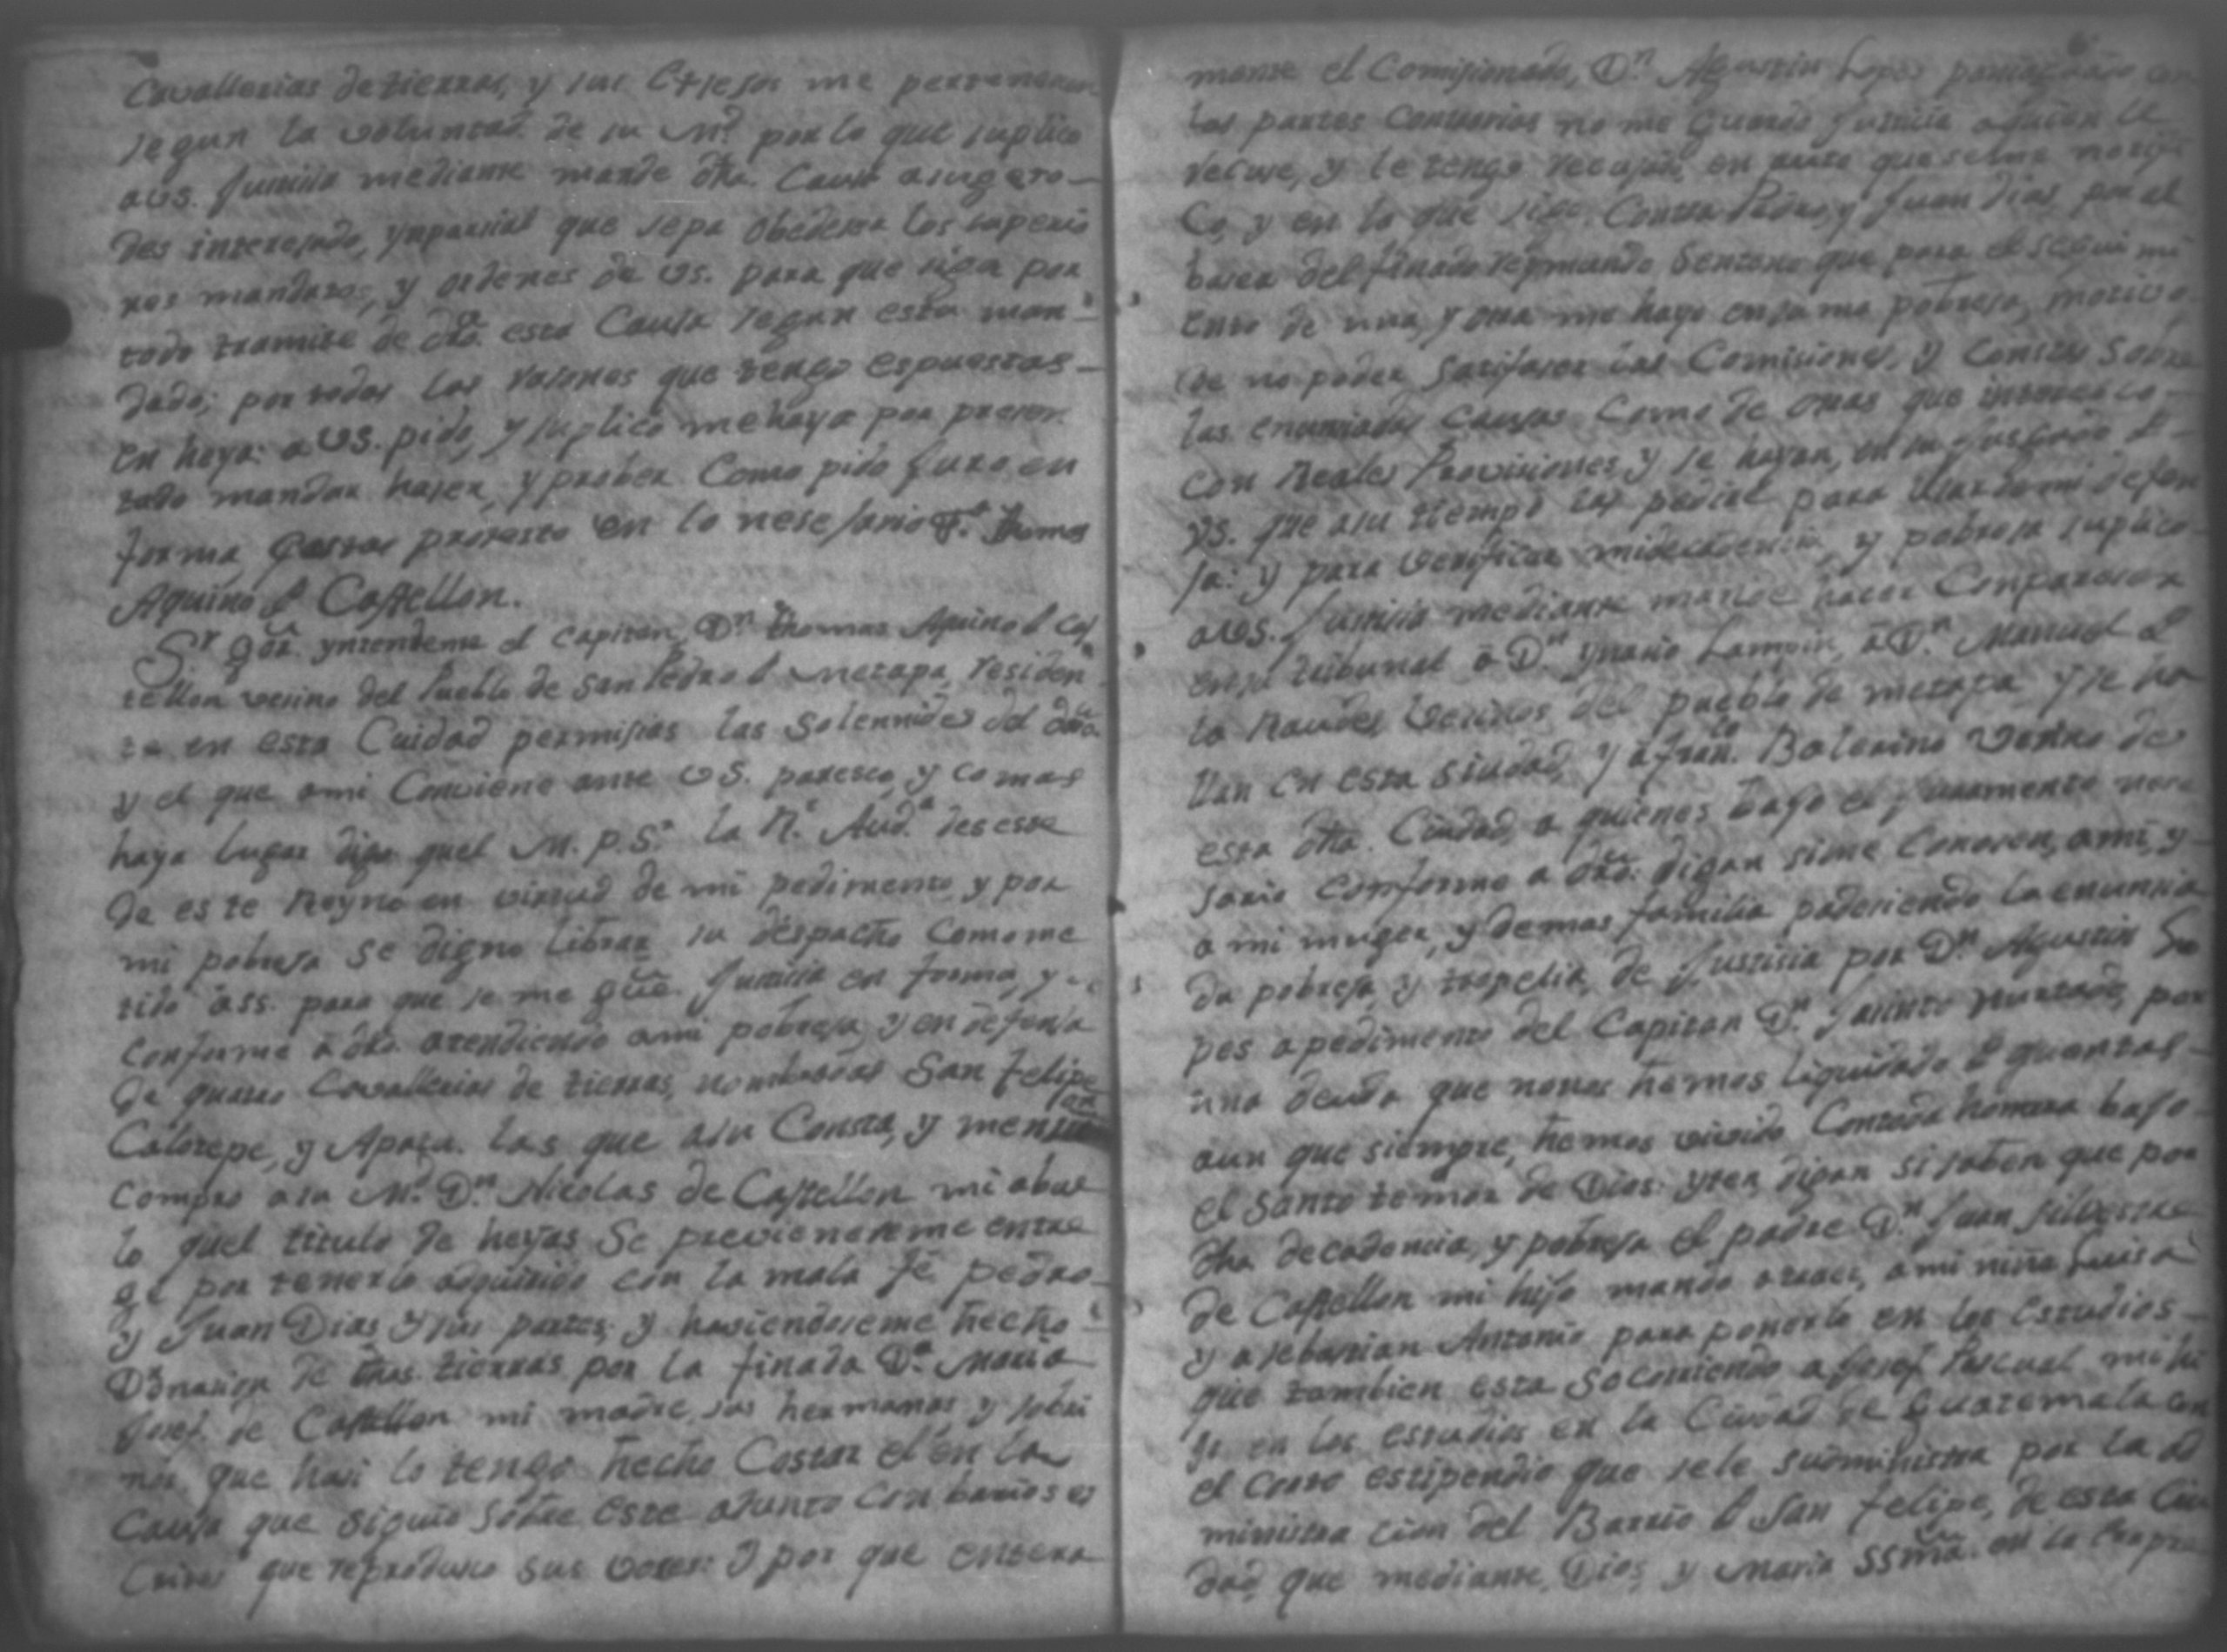 Cavallerias de tierras, y sus Ctresos me pertenecen
segun la voluntad de su Md. por lo que suplico
a VS. Justicia mediante mande dha. Causa a sugeto
des interesado, ynparcial que sepa obedeser los superio
res mandatos, y ordenes de VS. para que siga por
todo tramite de dro. esta Causa segun esta man
dado; por todas las rasones que tengo espuestas
en heya: a VS. pido, y suplico me haya por presen
tado mandar haser, y prober Como pido Juro en
forma Costas protesto en lo nesesario Va. Thomas
Aquino de Castellon.
Sr. Gor. yntendente el Capitan Dn. thomas Aquino de Cas
tellon vesino del Pueblo de San Pedro de Metapa residen
te en esta Cuidad permisas las Solennides del dro.
y el que ami Conviene ante VS. paresco, y como mas
haya lugar digo quel M. P. S. la Rl. Auda. des este
de este Reyno en virtud de mi pedimento, y por
mi pobresa se digno librar su despacho Comome
tido a ss. para que se me gue. Justicia en forma, y
Conforme a dro. atendiendo ami pobresa, y en defensa
de quatro Cavallerias de tierras, nombradas San Felipe
Calotepe, y Apasu. las que asu Costa, y mension
Compro a su Md. Dn. Nicolas de Castellon mi abue
lo quel titulo de heyas Se previene se me entre
ge por tenerlo adquirido con la mala fe pedro
y Juan Dias, y sus partes; y haviendoseme hecho
Donasion de dhas. tierras por la finada Da. Maria
Josef. de Castellon mi madre, sus hermanas y sobri
nos que hasi lo tengo hecho Costar el en la
Causa que siguio sobre este asunto con barios es
Critos que reprodusco sus voses: Y por que entera
mente el Comisionado, Dn. Agustin Lopes
las partes Contrarias no me Guardo Justicia a quien le
recuse, y le tengo recusado, en auto que se hiso noto
Co, y en lo que sigo Contra Pedro, y Juan Dias por el
baxea del finado Senteno que para el seguimi
ento de una, y otra me hayo en suma pobresa, motivo
de no poder satisfaser las Comisiones, y Costas Sobre
las enunciadas Causas Como de otras que
con Reales Provisiones, y se hayan, en su Jusgado de
VS. que asu tiempo las pedire para usar de mi defen
sa: y para verificar mi decadencia, y pobresa suplico
a VS. Justicia mediante mande haser Conpareser
en su tribunal a Dn. Ynasio Lampin, a Dn. Manuel de
la Vesinos del pueblo de metapa y se ha
yan en esta siudad, y a Franco. Balerino Vesino de
esta dha. Ciudad, a quienes bajo el juramento nese
sario Conforme a dro. digan si me Conosen, ami, y
a mi muger, y demas familia padesiendo la enuncia
da pobresa, y tropelia, de Justicia por Dn. Agustin Lo
pes apedimento del Capitan Dn. Jasinto Hurtado, por
una deuda que no nos hemos liquidado de quentas
aun que siempre, hemos vivido Contoda honrra bajo
el Santo temor de Dios: yten digan si saben que por
dha decadencia, y pobresa el padre Dn. Juan Silvestre
de Castellon mi hijo mando atraer, ami niña Luisa
y a sebastian Antonio para ponerlo en los Estudios
que tambien esta socorriendo a Josef Pascual mi hi
jo en los estudios en la Ciudad de Guatemala con
el Corto estipendio que sele suministra por la ad
ministra cion del Barrio de San Felipe, de esta Ciu
dad que mediante, Dios, y Maria SSma. en la